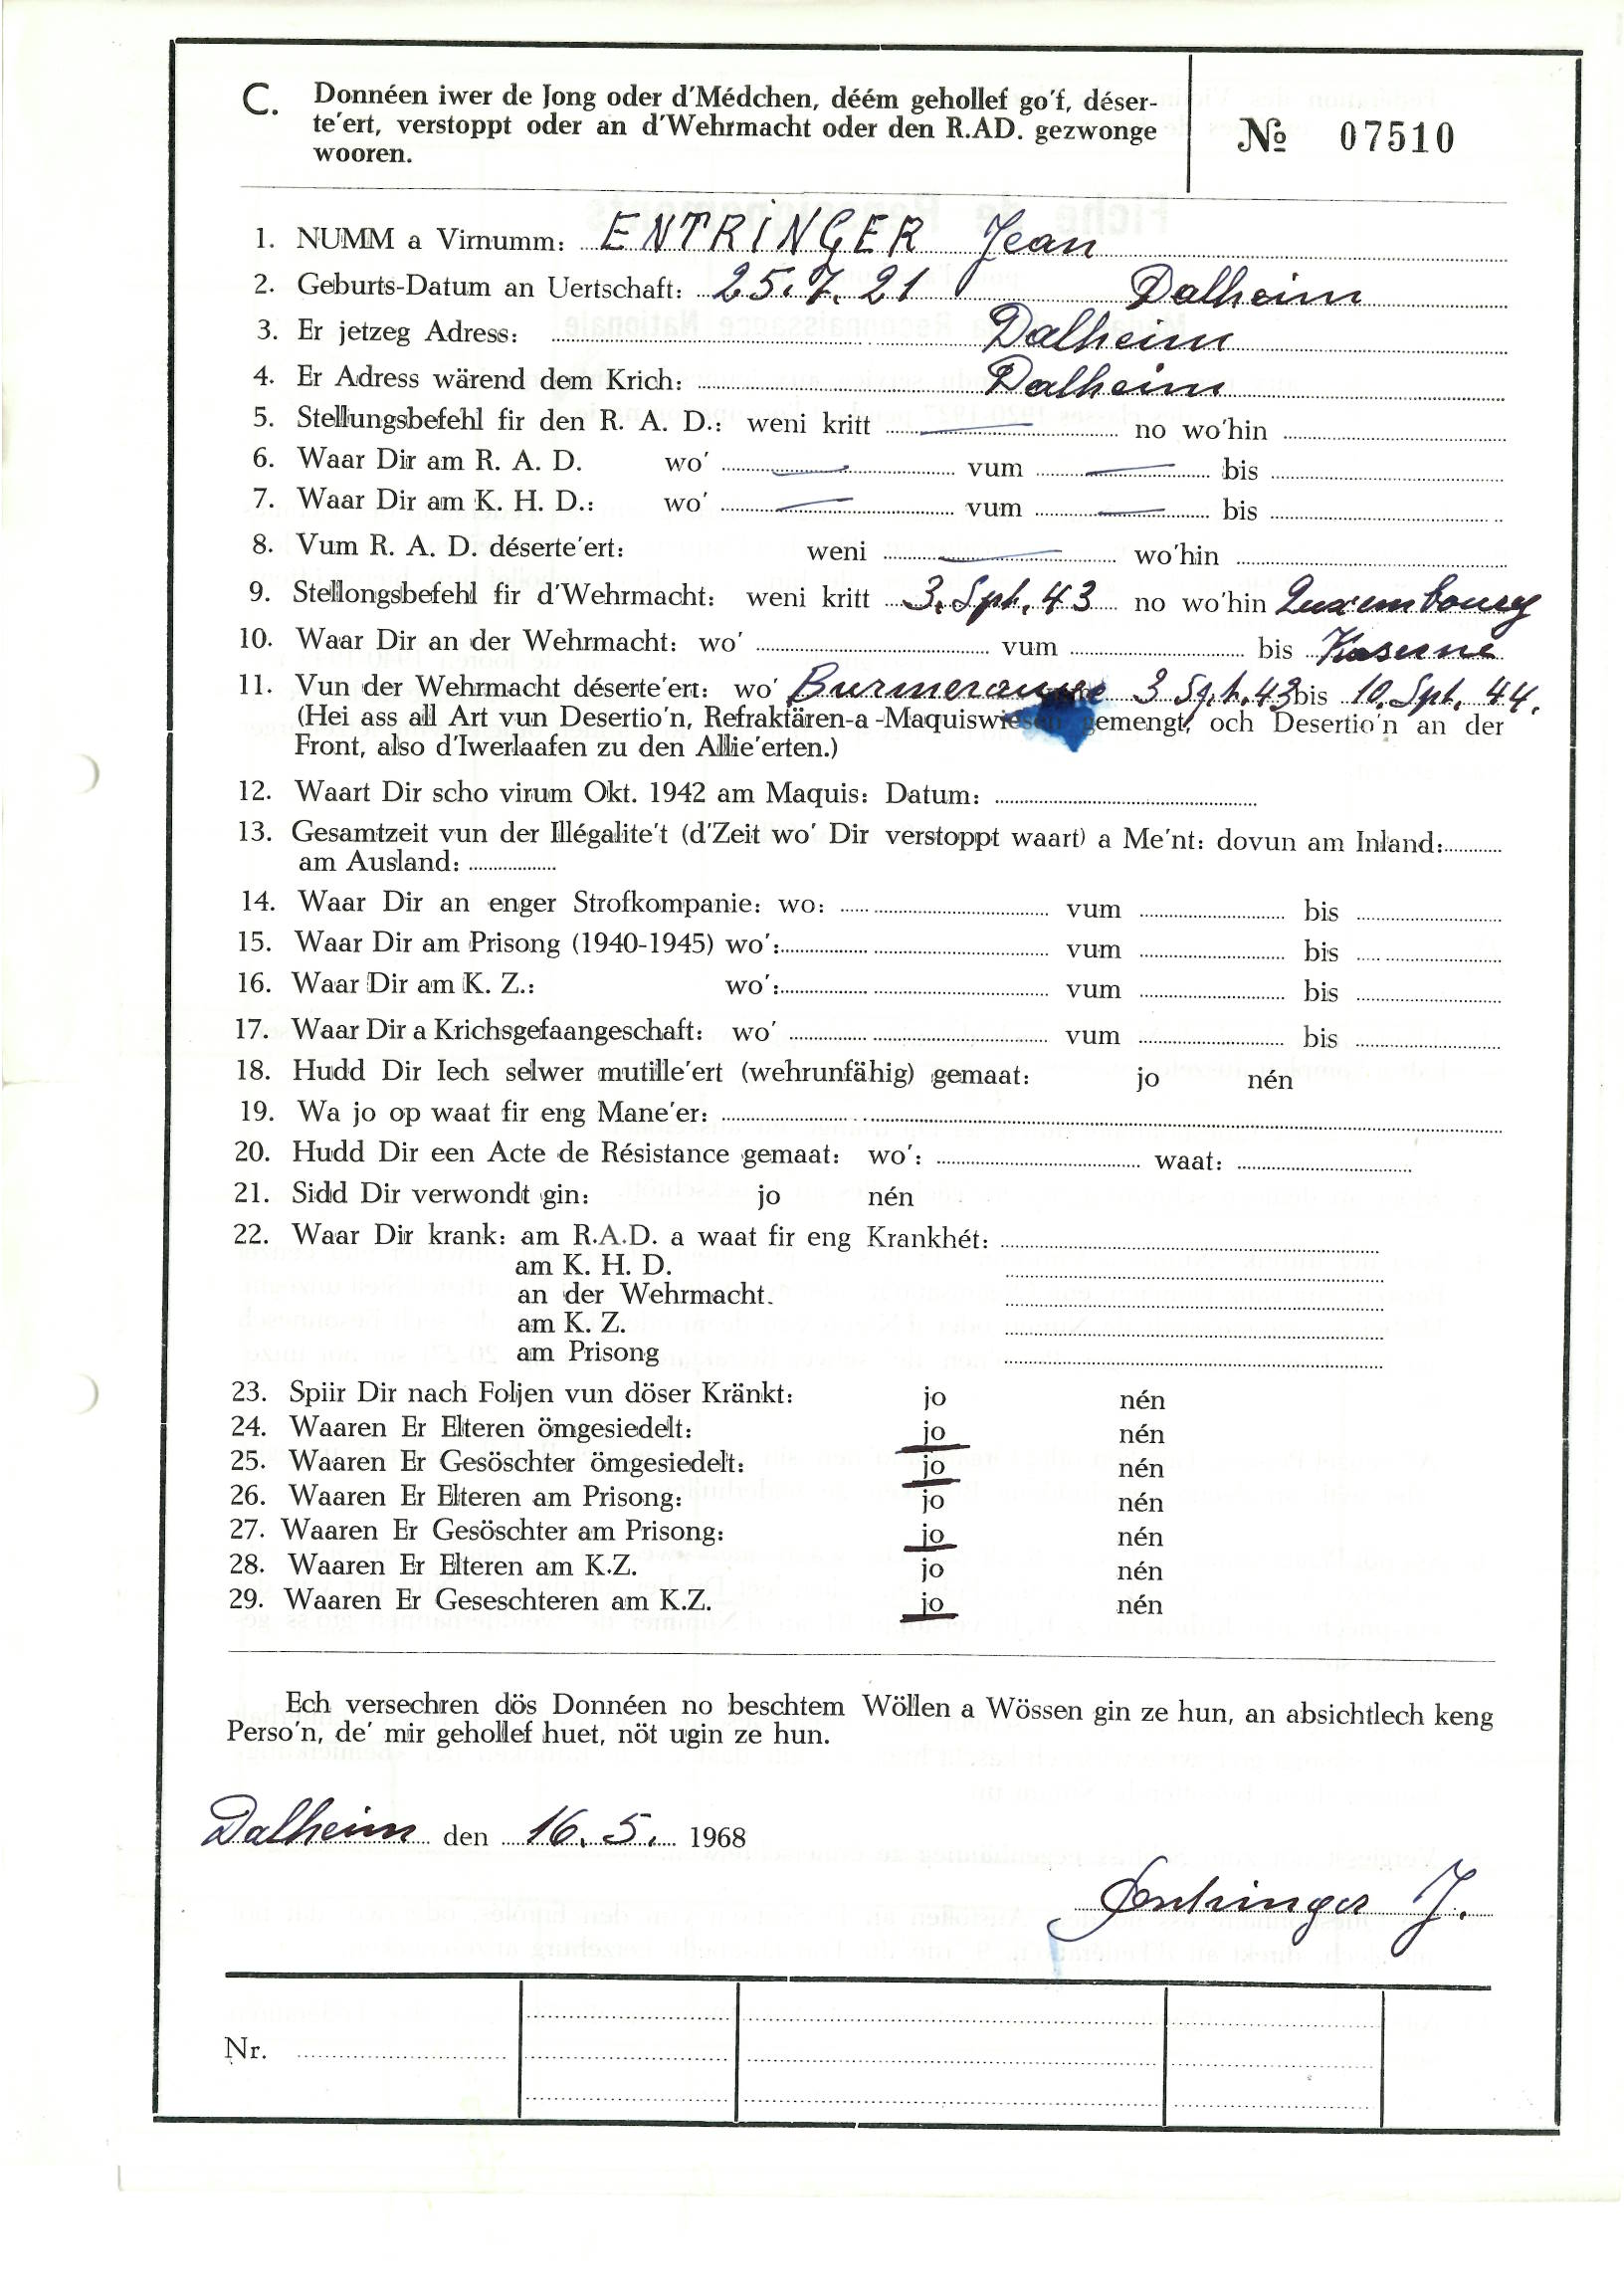 C. Donnéen iwer de Jong oder d'Médchen, déém gehollef go'f, déser-
te'ert, verstoppt oder an d'Wehrmacht oder den R.AD. gezwonge
wooren.
№ 07510
1. NUMM a Virnumm: ENTRINGER Jean
2. Geburts-Datum an Uertschaft: 25.7.21 Dalheim
3. Er jetzeg Adress: Dalheim
4. Er Adress wärend dem Krich: Dalheim
5. Stellungsbefehl fir den R. A. D.: weni kritt — no wo'hin
6. Waar Dir am R. A. D. wo' — vum — bis
7. Waar Dir am K. H. D.: wo' — vum — bis
8. Vum R. A. D. déserte'ert: weni — wo'hin
9. Stellongsbefehl fir d'Wehrmacht: weni kritt 3. Spt. 43 no wo'hin Luxembourg
10. Waar Dir an der Wehrmacht: wo' vum bis Kaserne
11. Vun der Wehrmacht déserte'ert: wo' Burmerange 3 Spt. 43 bis 10. Spt. 44.
(Hei ass all Art vun Desertio'n, Refraktären-a -Maquiswiesen gemengt, och Desertio'n an der
Front, also d'Iwerlaafen zu den Allie'erten.)
12. Waart Dir scho virum Okt. 1942 am Maquis: Datum:
13. Gesamtzeit vun der Illégalite't (d'Zeit wo' Dir verstoppt waart) a Me'nt: dovun am Inland:
am Ausland:
14. Waar Dir an enger Strofkompanie: wo: vum bis
15. Waar Dir am Prisong (1940-1945) wo': vum bis
16. Waar Dir am K. Z.: wo': vum bis
17. Waar Dir a Krichsgefaangeschaft: wo' vum bis
18. Hudd Dir Iech selwer mutille'ert (wehrunfähig) gemaat: jo nén
19. Wa jo op waat fir eng Mane'er:
20. Hudd Dir een Acte de Résistance gemaat: wo': waat:
21. Sidd Dir verwondt gin: jo nén
22. Waar Dir krank: am R.A.D. a waat fir eng Krankhét:
am K. H. D.
an der Wehrmacht.
am K. Z.
am Prisong
23. Spiir Dir nach Foljen vun döser Kränkt: jo nén
24. Waaren Er Elteren ömgesiedelt: jo nén
25. Waaren Er Gesöschter ömgesiedelt: jo nén
26. Waaren Er Elteren am Prisong: jo nén
27. Waaren Er Gesöschter am Prisong: jo nén
28. Waaren Er Elteren am K.Z. jo nén
29. Waaren Er Geseschteren am K.Z. jo nén
Ech versechren dös Donnéen no beschtem Wöllen a Wössen gin ze hun, an absichtlech keng
Perso'n, de' mir gehollef huet, nöt ugin ze hun.
Dalheim den 16. 5. 1968
Entringer J.
Nr.